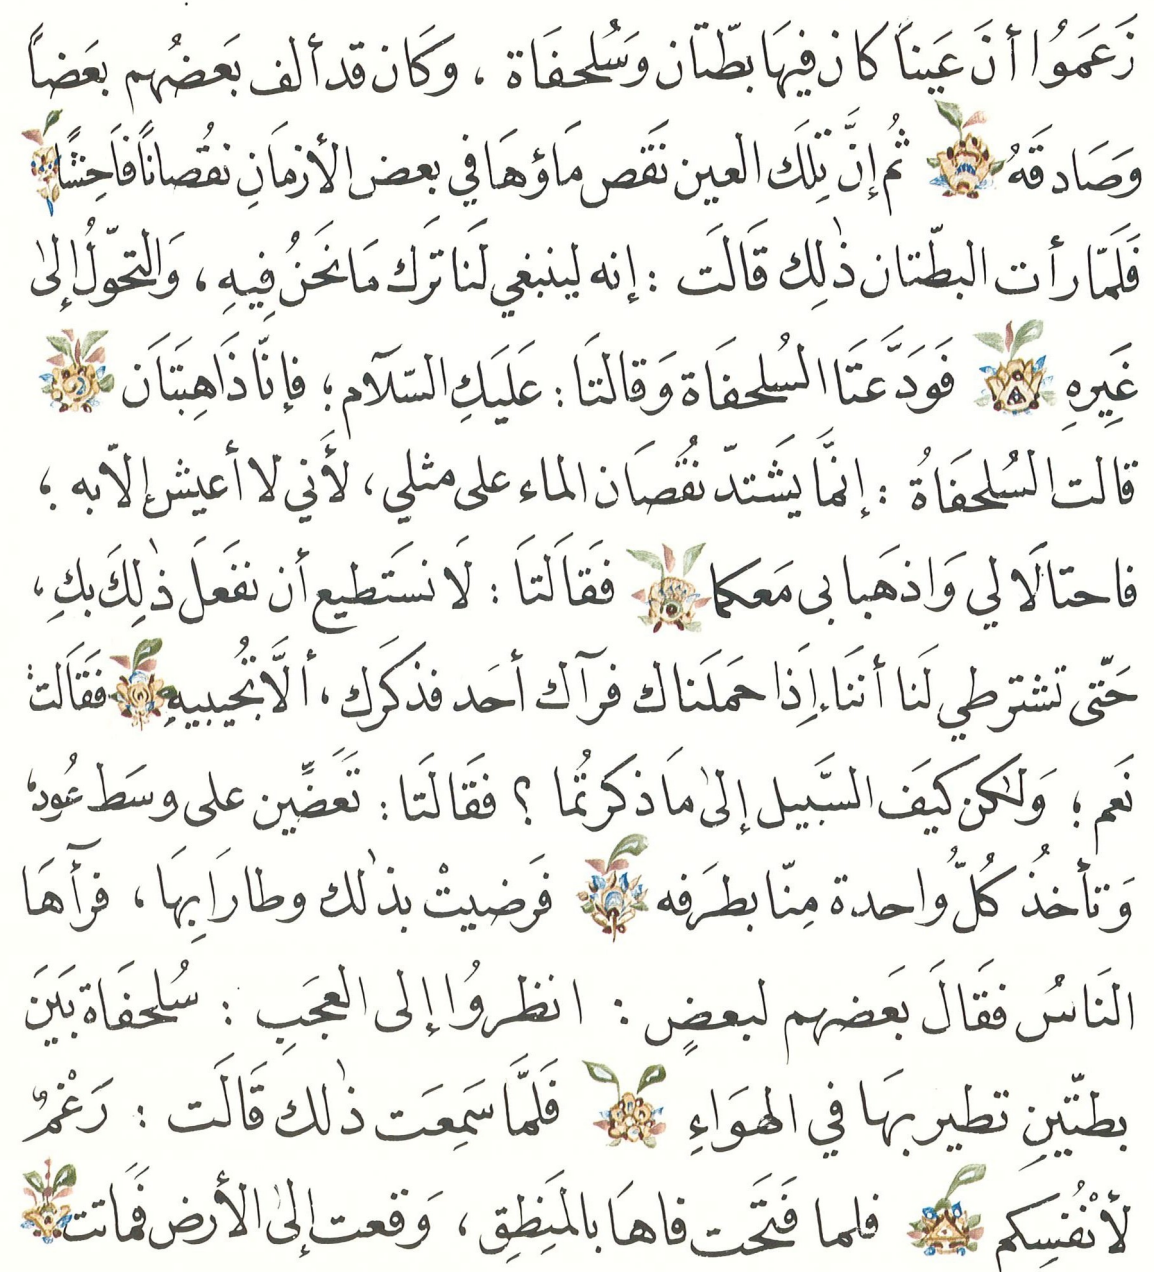 زَعَمُوا أنَّ عَينًا كان فيهَا بطّتان وَسُلحفَاة ، وكَان قد ألف بَعضُهم بَعضاً
وَصَادقَهُ ثُم إنَّ تِلكَ العين نقَص مَاؤهَا في بعض الأزمَانِ نقُصاناً فَاحِشًا
فَلَمّا رأت البطّتان ذٰلِك قَالَت : إنه لينبغي لَنا تَرك مَا نَحَنُ فِيهِ ، وَالتحوّلُ إلىٰ
غَيرِهِ فَوَدَّعَتَا السُلحفَاة وَقالتَا : عَلَيكِ السّلَام ؛ فإنّا ذَاهِبَتَان
قالت السُلحفَاةُ : إنمَّا يَشتدّ نقُصَان الماء على مثلي ، لأَني لا أعيش إلّا به ؛
فاحتالَا لي وَاذهَبا بى مَعكما فقَالَتا : لَا نسَتطيع أن نفعَلَ ذٰلِكَ بكِ ،
حَتّى تشترطي لَنا أننَا إذا حمَلنَاك فرآك أحَد فذكَرك ، ألَّا تجُيبيهِ فقَالَت
نَعم ؛ وَلٰكن كيَف السَّبيل إلىٰ مَا ذكرتُما ؟ فقَالَتا : تَعَضِّين على وسَط عُود
وَتأخذُ كُلُّ واحدة مِنّا بطرَفه فَرضيتْ بذٰلك وطارَا بِهَا ، فرآهَا
النَاسُ فقَالَ بَعضهم لبعضٍ : انظروُا إلى العجَبِ : سُلحفَاة بَيَن
بطّتَينِ تطير بهَا في الهوَاءِ فَلَمَّا سَمِعَت ذٰلك قَالَت : رَغْمٌ
لأنْفُسِكم فلما فَتَحَت فاهَا بالمَنطِقِ ، وَقعت إلىٰ الأرض فمَاتت